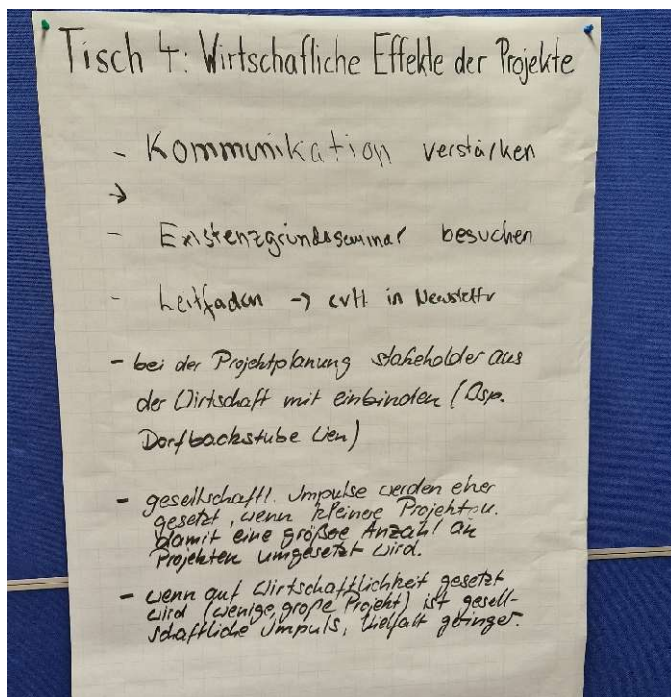 Tisch 4: Wirtschafliche Effekte der Projekte
- Kommunikation verstärken
→
- Existenzgründsseminar besuchen
- Leitfaden → evtl in Newslettr
- bei der Projektplanung stakeholder aus
der Wirtschaft mit einbinden (Bsp.
Dorfbackstube Lien)
- gesellschaftl. Impulse werden eher
gesetzt, wenn kleinee Projekt u.
damit eine große Anzahl an
Projekten umgesetzt wird.
- wenn auf Wirtschaftlichkeit gesetzt
wird (wenige, große Projekt) ist gesell-
schaftliche Impuls, Vielfalt geringer.